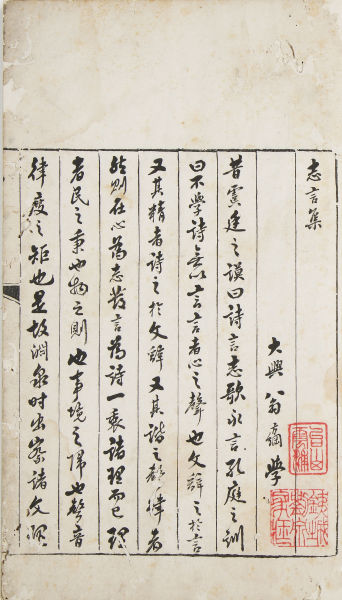 志言集
大興翁學
昔虞廷之謨曰詩言志歌永言孔庭之訓
曰不學詩無以言言者心之聲也文辭之於言
又其精者詩之於文辭又其諧之聲律者
然則在心為志發言為詩一衷諸理而已理
者民之秉也物之則也事境之歸也聲音
律度之矩也是故淵泉時出察諸文理